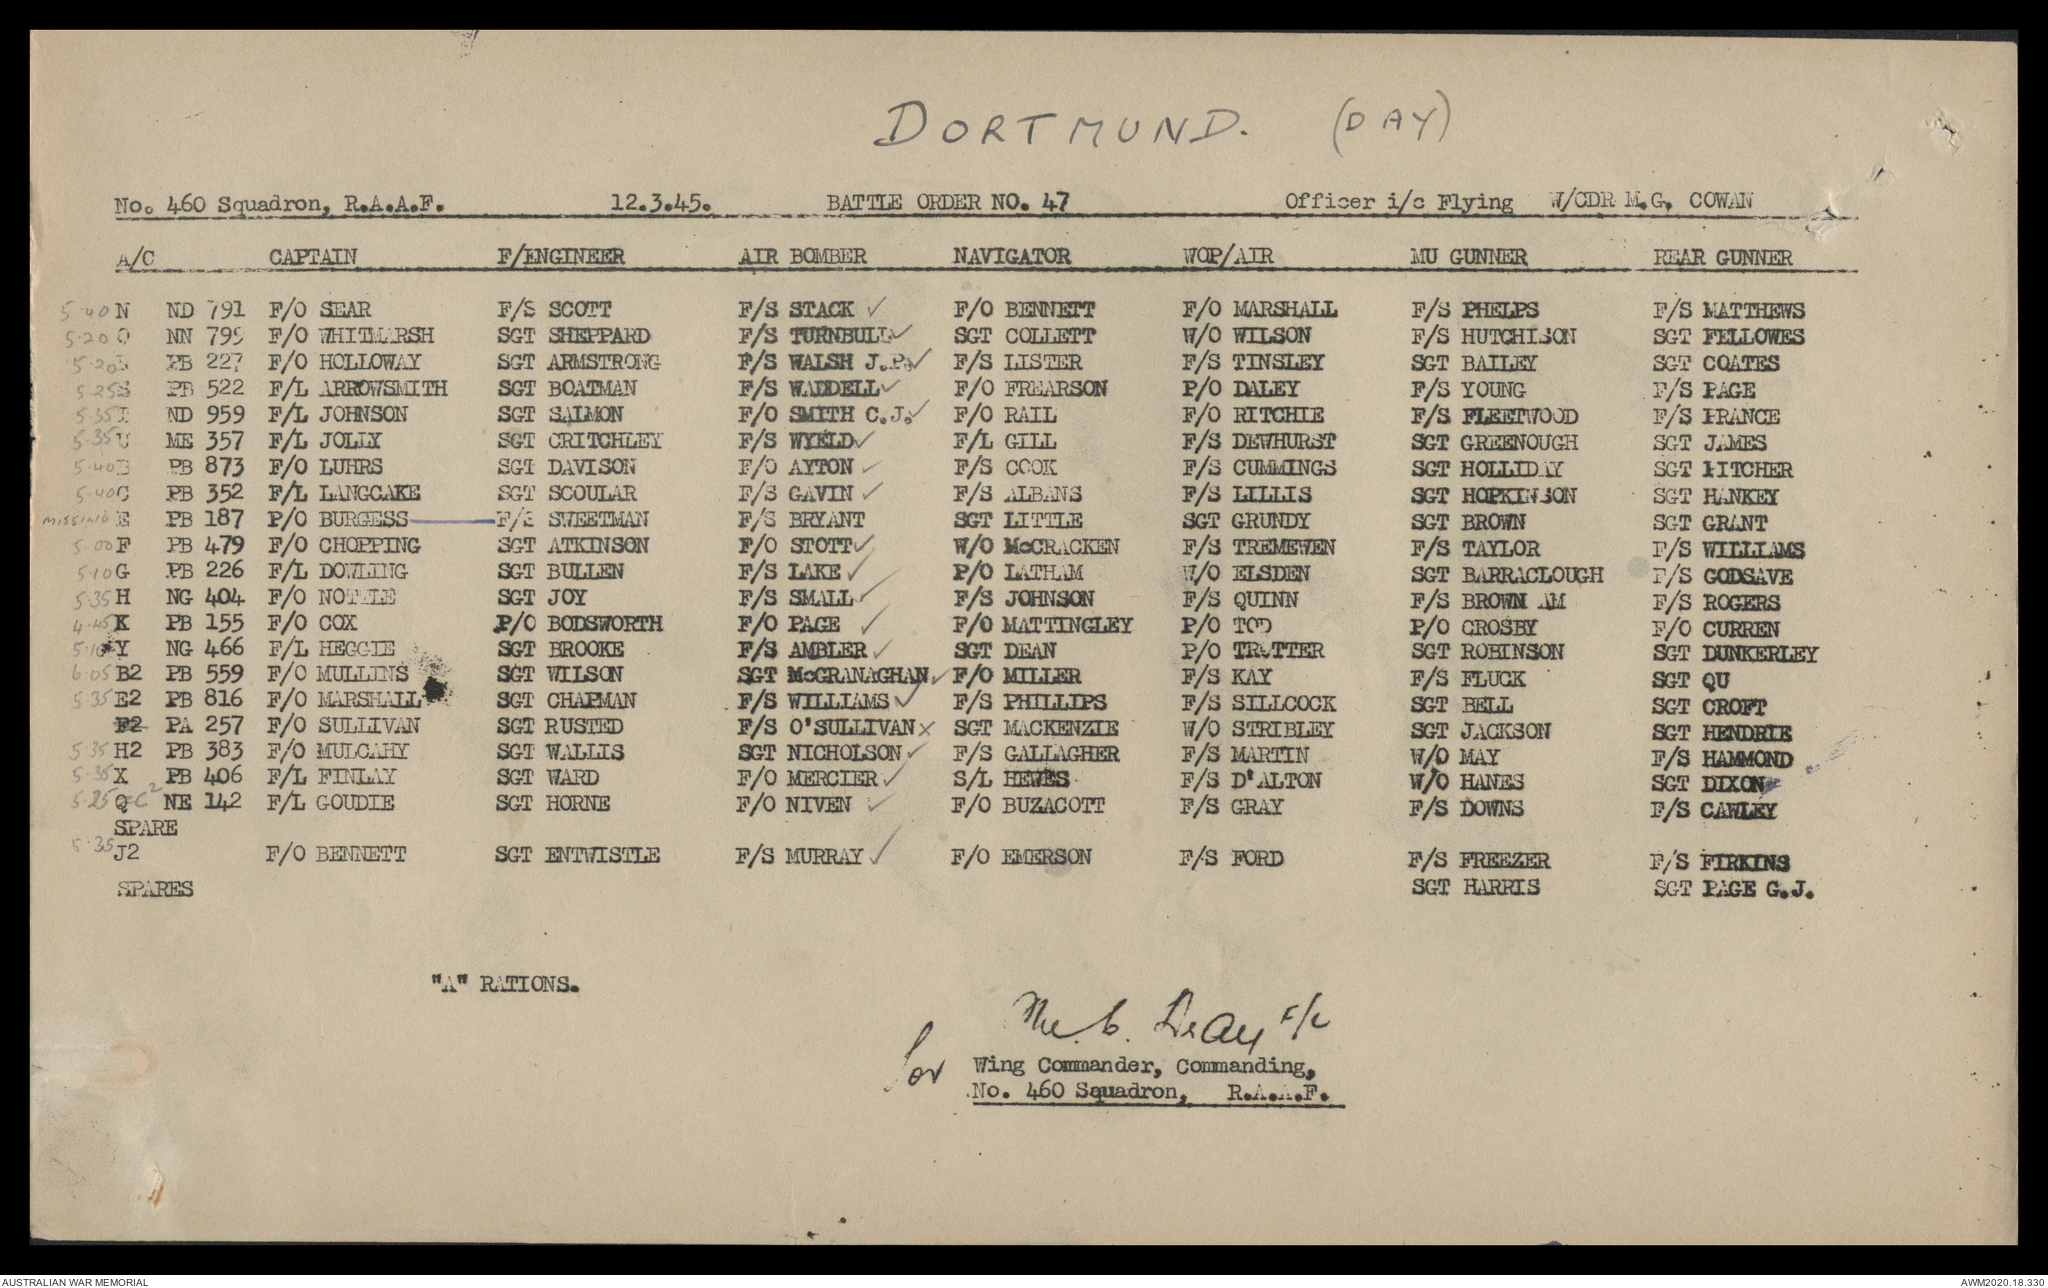 DORTMUND. (DAY)
No. 460 Squadron, R.A.A.F. 12.3.45. BATTLE ORDER NO. 47 Officer i/c Flying W/CDR M.G. COWAN
A/C CAPTAIN F/ENGINEER AIR BOMBER NAVIGATOR WOP/AIR MU GUNNER REAR GUNNER
5.40 N ND 791 F/O SEAR F/S SCOTT F/S STACK ✓ F/O BENNETT F/O MARSHALL F/S PHELPS F/S MATTHEWS
5.20 O NN 799 F/O WHITMARSH SGT SHEPPARD F/S TURNBULL ✓ SGT COLLETT W/O WILSON F/S HUTCHISON SGT FELLOWES
5.20 PB 227 F/O HOLLOWAY SGT ARMSTRONG F/S WALSH J.P. ✓ F/S LISTER F/S TINSLEY SGT BAILEY SGT COATES
5.25 S PB 522 F/L ARROWSMITH SGT BOATMAN F/S WADDELL ✓ F/O FREARSON P/O DALEY F/S YOUNG F/S PAGE
5.35 ND 959 F/L JOHNSON SGT SALMON F/O SMITH C.J. ✓ F/O RAIL F/O RITCHIE F/S FLEETWOOD F/S FRANCE
5.35 U ME 357 F/L JOLLY SGT CRITCHLEY F/S WYELD ✓ F/L GILL F/S DEWHURST SGT GREENOUGH SGT JAMES
5.40 B PB 873 F/O LUHRS SGT DAVISON F/O AYTON ✓ F/S COOK F/S CUMMINGS SGT HOLLIDAY SGT PITCHER
5.40 C PB 352 F/L LANGCAKE SGT SCOULAR F/S GAVIN ✓ F/S ALBANS F/S LILLIS SGT HOPKINSON SGT HANKEY
MISSING E PB 187 P/O BURGESS F/S SWEETMAN F/S BRYANT SGT LITTLE SGT GRUNDY SGT BROWN SGT GRANT
5.00 F PB 479 F/O CHOPPING SGT ATKINSON F/O STOTT ✓ W/O McCRACKEN F/S TREMEWEN F/S TAYLOR F/S WILLIAMS
5.10 G PB 226 F/L DOWLING SGT BULLEN F/S LAKE ✓ P/O LATHAM W/O ELSDEN SGT BARRACLOUGH F/S GODSAVE
5.35 H NG 404 F/O NOTTLE SGT JOY F/S SMALL ✓ F/S JOHNSON F/S QUINN F/S BROWN AM F/S ROGERS
4.45 K PB 155 F/O COX P/O BODSWORTH F/O PAGE ✓ F/O MATTINGLEY P/O TOD P/O CROSBY F/O CURREN
5.10 Y NG 466 F/L HEGGIE SGT BROOKE F/S AMBLER ✓ SGT DEAN P/O TROTTER SGT ROBINSON SGT DUNKERLEY
6.05 B2 PB 559 F/O MULLINS SGT WILSON SGT McGRANAGHAN ✓ F/O MILLER F/S KAY F/S FLUCK SGT QU
5.35 E2 PB 816 F/O MARSHALL SGT CHAPMAN F/S WILLIAMS ✓ F/S PHILLIPS F/S SILLCOCK SGT BELL SGT CROFT
F2 PA 257 F/O SULLIVAN SGT RUSTED F/S O'SULLIVAN x SGT MACKENZIE W/O STRIBLEY SGT JACKSON SGT HENDRIE
5.35 H2 PB 383 F/O MULCAHY SGT WALLIS SGT NICHOLSON ✓ F/S GALLAGHER F/S MARTIN W/O MAY F/S HAMMOND
5.35 X PB 406 F/L FINLAY SGT WARD F/O MERCIER ✓ S/L HEWES F/S D'ALTON W/O HANES SGT DIXON
5.25 Q C2 NE 142 F/L GOUDIE SGT HORNE F/O NIVEN ✓ F/O BUZACOTT F/S GRAY F/S DOWNS F/S CAWLEY
SPARE
5.35 J2 F/O BENNETT SGT ENTWISTLE F/S MURRAY ✓ F/O EMERSON F/S FORD F/S FREEZER F/S FIRKINS
SPARES SGT HARRIS SGT PAGE G.J.
"A" RATIONS.
F/L
for Wing Commander, Commanding,
No. 460 Squadron, R.A.A.F.
AUSTRALIAN WAR MEMORIAL AWM2020.18.330